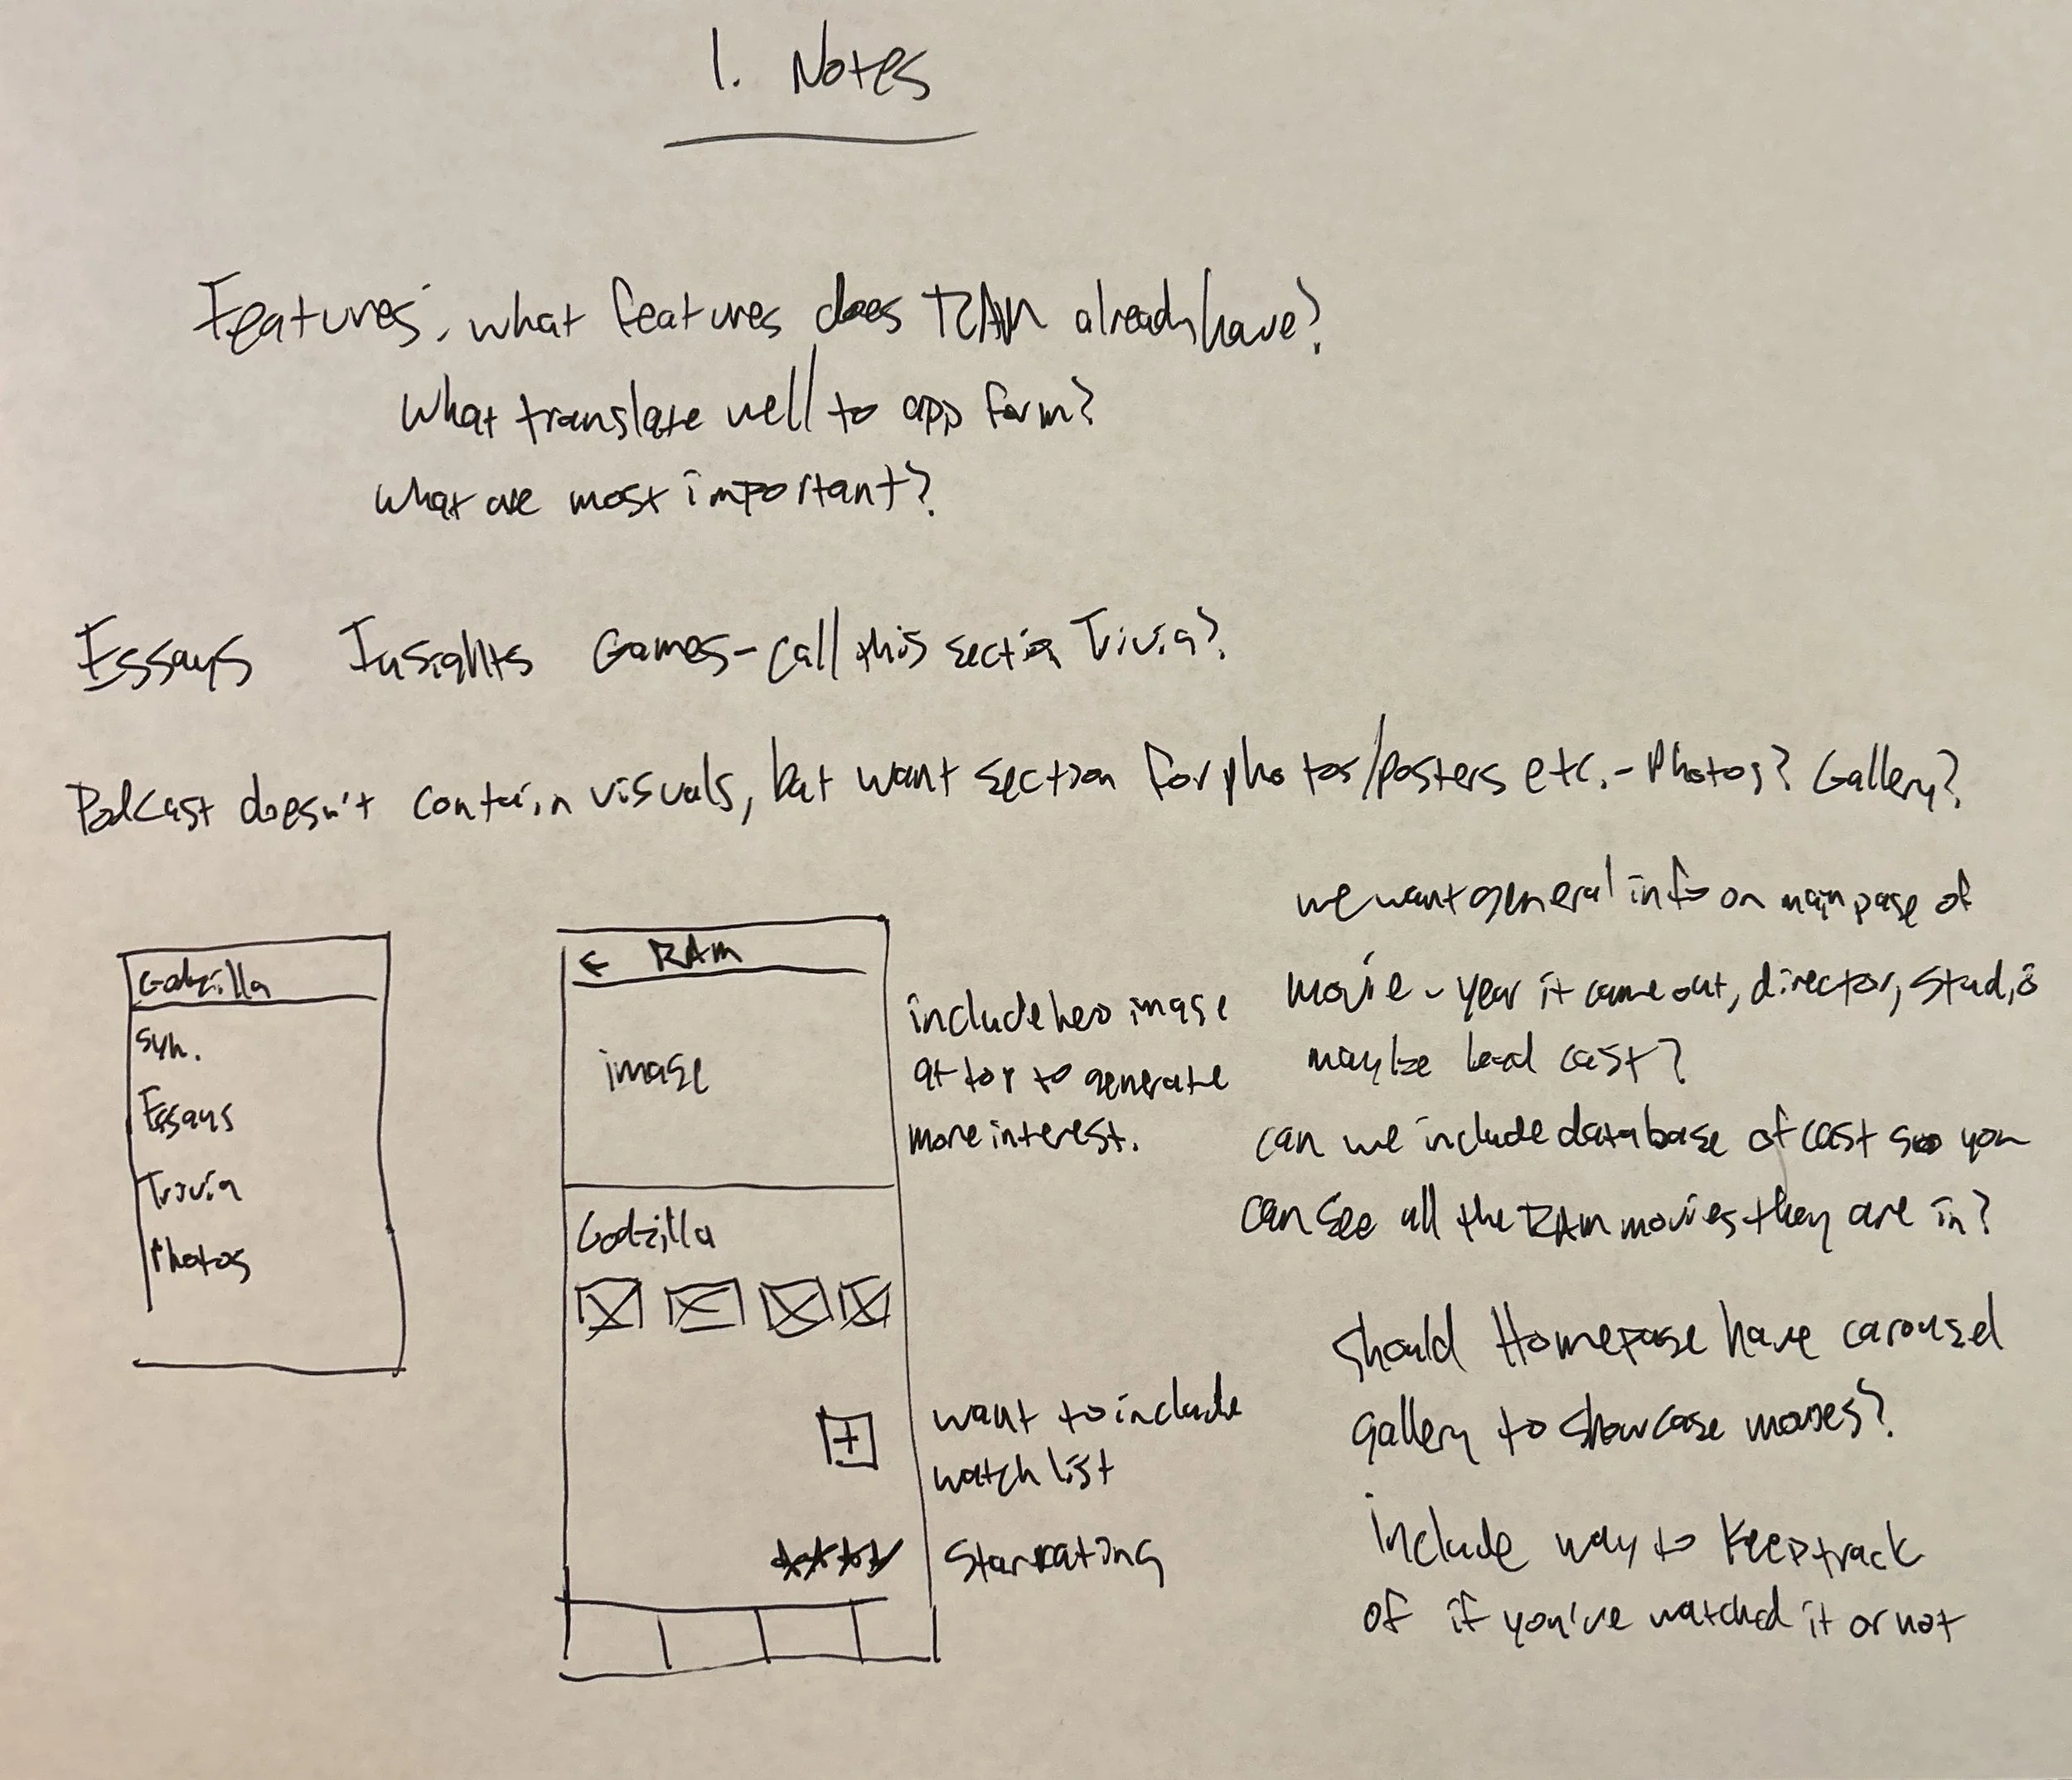 1. Notes
Features: what features does RAM already have?
What translate well to app form?
What are most important?
Essays Insights Games - call this section Trivia?
Podcast doesn't contain visuals, but want section for photos/posters etc. - Photos? Gallery?
Godzilla
Syn.
Essays
Trivia
Photos
← RAM
image
Godzilla
+
include hero image
at top to generate
more interest.
want to include
watch list
Star rating
we want general info on main page of
movie - year it came out, director, studio
maybe lead cast?
can we include database of cast so you
can see all the RAM movies they are in?
Should Homepage have carousel
gallery to showcase movies?
include way to keep track
of if you've watched it or not